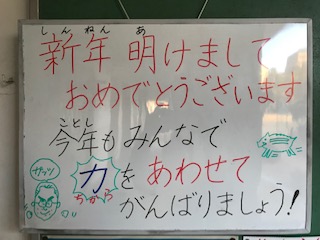 しんねん あ
新年 明けまして
おめでとうございます
ことし
今年もみんなで
力をあわせて
ちから
がんばりましょう!